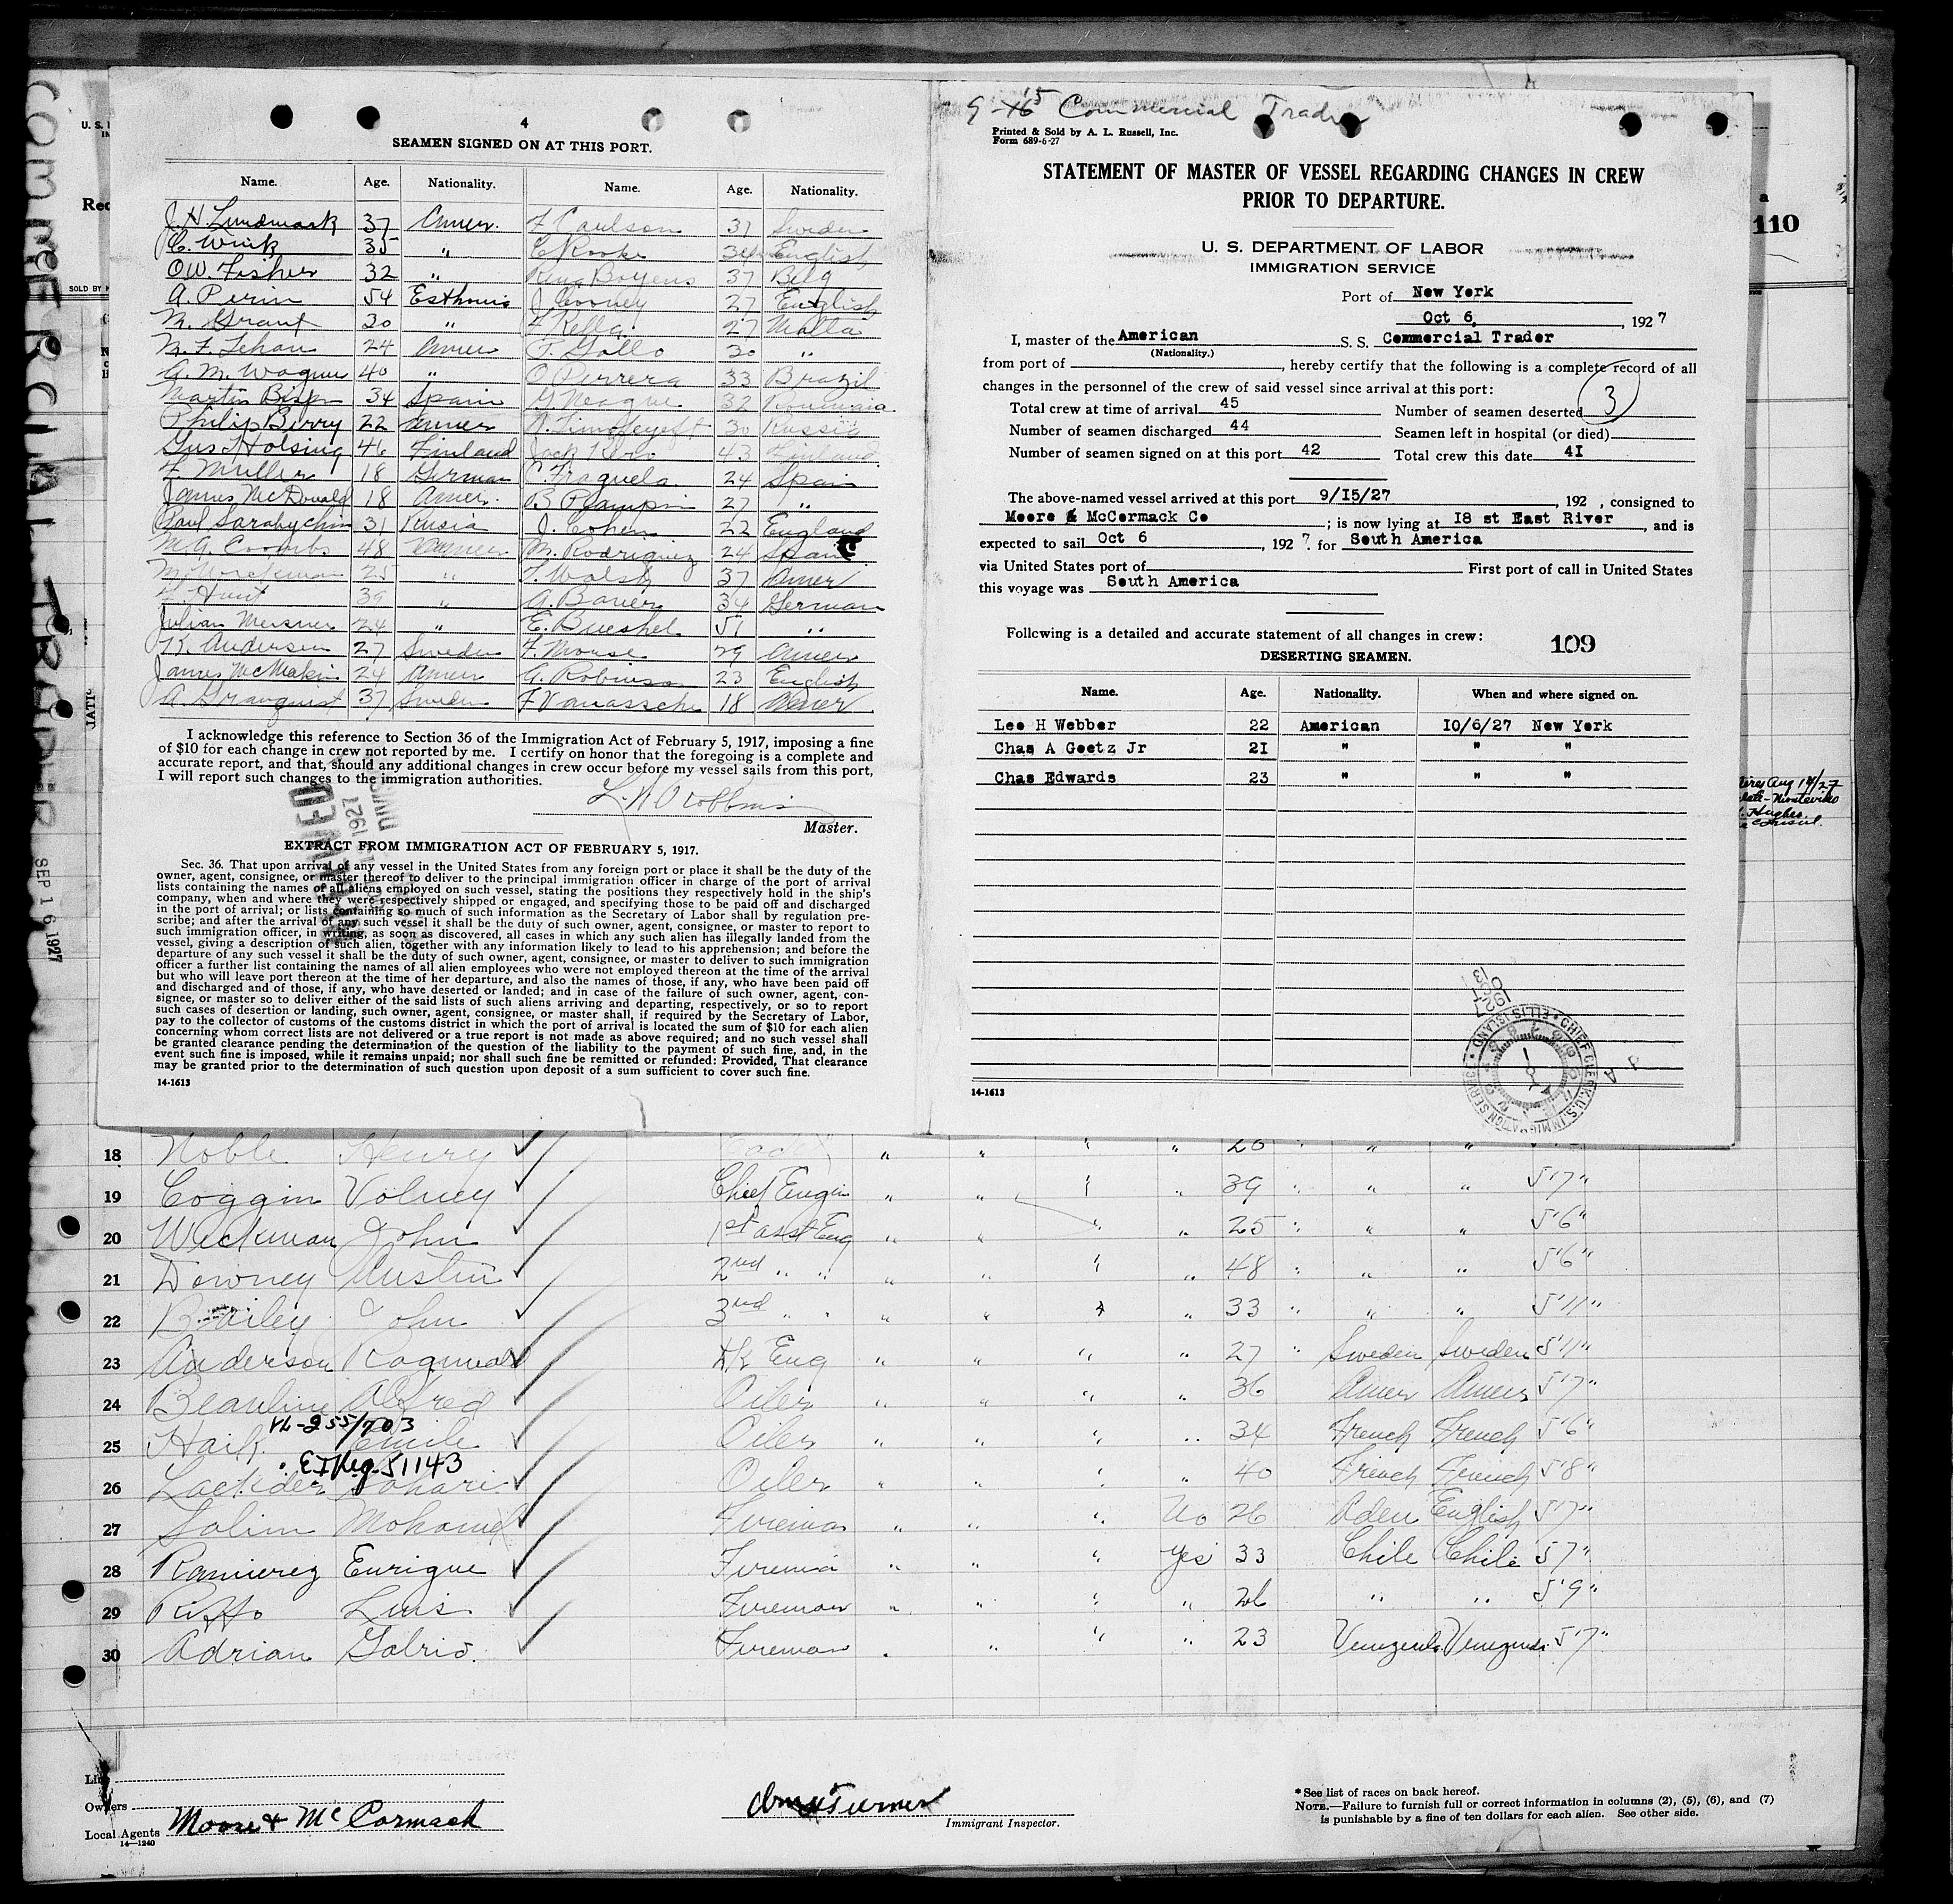 COMMERCIAL TRADER
SEP 16 1927
110
4
SEAMEN SIGNED ON AT THIS PORT.
Name. Age. Nationality. Name. Age. Nationality.
J.H. Lundmark 37 Amer. F Caulson 31 Sweden
C. Wink 35 " C Rooke 34 English
O.W. Fisher 32 " Boyens 37 Belg
A. Perin 54 Esthonia J Cooney 27 English
M. Grant 30 " F Kella 27 Malta
M. F. Lehan 24 Amer P. Gallo 30 "
A. M. Wagner 40 " O Perrera 33 Brazil
Martin 34 Spain G Neague 32 Roumaia
Philip Berry 22 Amer N. Timofeyeff 30 Russia
Gus Holsing 46 Finland Jack 43 Finland
F Muller 18 German C. Fraguela 24 Spain
James McDonald 18 Amer. B Pampin 27 "
Paul Sarabychin 31 Rusia J. Cohen 22 England
M.G. Coombs 48 Amer M. Rodriguez 24 Spain
M. Workman 25 " F. Walsh 37 Amer
F Hunt 39 " A. Bauer 34 German
Julian Mersner 24 " E. Brueshel 51 "
R. Andersen 27 Sweden F. Morse 29 Amer
James McMakin 24 Amer A. Robinson 23 English
A. Granquist 37 Sweden F Vanassche 18 Amer
I acknowledge this reference to Section 36 of the Immigration Act of February 5, 1917, imposing a fine
of $10 for each change in crew not reported by me. I certify on honor that the foregoing is a complete and
accurate report, and that, should any additional changes in crew occur before my vessel sails from this port,
I will report such changes to the immigration authorities.
Master.
EXTRACT FROM IMMIGRATION ACT OF FEBRUARY 5, 1917.
Sec. 36. That upon arrival of any vessel in the United States from any foreign port or place it shall be the duty of the
owner, agent, consignee, or master thereof to deliver to the principal immigration officer in charge of the port of arrival
lists containing the names of all aliens employed on such vessel, stating the positions they respectively hold in the ship's
company, when and where they were respectively shipped or engaged, and specifying those to be paid off and discharged
in the port of arrival; or lists containing so much of such information as the Secretary of Labor shall by regulation pre-
scribe; and after the arrival of any such vessel it shall be the duty of such owner, agent, consignee, or master to report to
such immigration officer, in writing, as soon as discovered, all cases in which any such alien has illegally landed from the
vessel, giving a description of such alien, together with any information likely to lead to his apprehension; and before the
departure of any such vessel it shall be the duty of such owner, agent, consignee, or master to deliver to such immigration
officer a further list containing the names of all alien employees who were not employed thereon at the time of the arrival
but who will leave port thereon at the time of her departure, and also the names of those, if any, who have been paid off
and discharged and of those, if any, who have deserted or landed; and in case of the failure of such owner, agent, con-
signee, or master so to deliver either of the said lists of such aliens arriving and departing, respectively, or so to report
such cases of desertion or landing, such owner, agent, consignee, or master shall, if required by the Secretary of Labor,
pay to the collector of customs of the customs district in which the port of arrival is located the sum of $10 for each alien
concerning whom correct lists are not delivered or a true report is not made as above required; and no such vessel shall
be granted clearance pending the determination of the question of the liability to the payment of such fine, and, in the
event such fine is imposed, while it remains unpaid; nor shall such fine be remitted or refunded: Provided, That clearance
may be granted prior to the determination of such question upon deposit of a sum sufficient to cover such fine.
14-1613
9-15 Commercial Trader
Printed & Sold by A. L. Russell, Inc.
Form 689-6-27
STATEMENT OF MASTER OF VESSEL REGARDING CHANGES IN CREW
PRIOR TO DEPARTURE.
U. S. DEPARTMENT OF LABOR
IMMIGRATION SERVICE
Port of New York
Oct 6, 1927
I, master of the American S. S. Commercial Trader
(Nationality.)
from port of , hereby certify that the following is a complete record of all
changes in the personnel of the crew of said vessel since arrival at this port:
Total crew at time of arrival 45 Number of seamen deserted 3
Number of seamen discharged 44 Seamen left in hospital (or died)
Number of seamen signed on at this port 42 Total crew this date 41
The above-named vessel arrived at this port 9/15/27 , 192 , consigned to
Moore & McCormack Co ; is now lying at 18 st East River , and is
expected to sail Oct 6 , 1927. for South America
via United States port of First port of call in United States
this voyage was South America
Following is a detailed and accurate statement of all changes in crew:
109
DESERTING SEAMEN.
Name. Age. Nationality. When and where signed on.
Lee H Webber 22 American 10/6/27 New York
Chas A Goetz Jr 21 " " "
Chas Edwards 23 " " "
14-1613
CHIEF CLERK, U.S. IMMIGRATION SERVICE ELLIS ISLAND
18 Noble Henry " " " " 20 " " "
19 Coggin Volney Chief Engin " " " " 39 " " " 5'7"
20 Weckman John 1st asst Eng " " " " 25 " " " 5'6"
21 Downey Austin 2nd " " " " " " 48 " " " 5'6"
22 Bailey John 3rd " " " " " 33 " " " 5'11"
23 Anderson Ragnvald Dk Eng " " " " 27 " Sweden Sweden 5'11"
24 Beauline Alfred Oiler " " " " 36 Amer Amer 5'7"
25 Haik Emile Oiler " " " " 34 French French 5'6"
26 Lackder Oiler " " " " 40 French French 5'8"
27 Salim Mohamed Fireman " " " No 26 Aden English 5'7"
28 Ramierez Enrique Fireman " " " Yes 33 Chile Chile 5'7"
29 Riffo Luis Fireman " " " " 26 " " 5'9"
30 Adrian Fireman " " " " 23 Venezuela Venezuela 5'7"
Line
Owners
Local Agents Moore & McCormack
14—1240
Immigrant Inspector.
* See list of races on back hereof.
NOTE.—Failure to furnish full or correct information in columns (2), (5), (6), and (7)
is punishable by a fine of ten dollars for each alien. See other side.